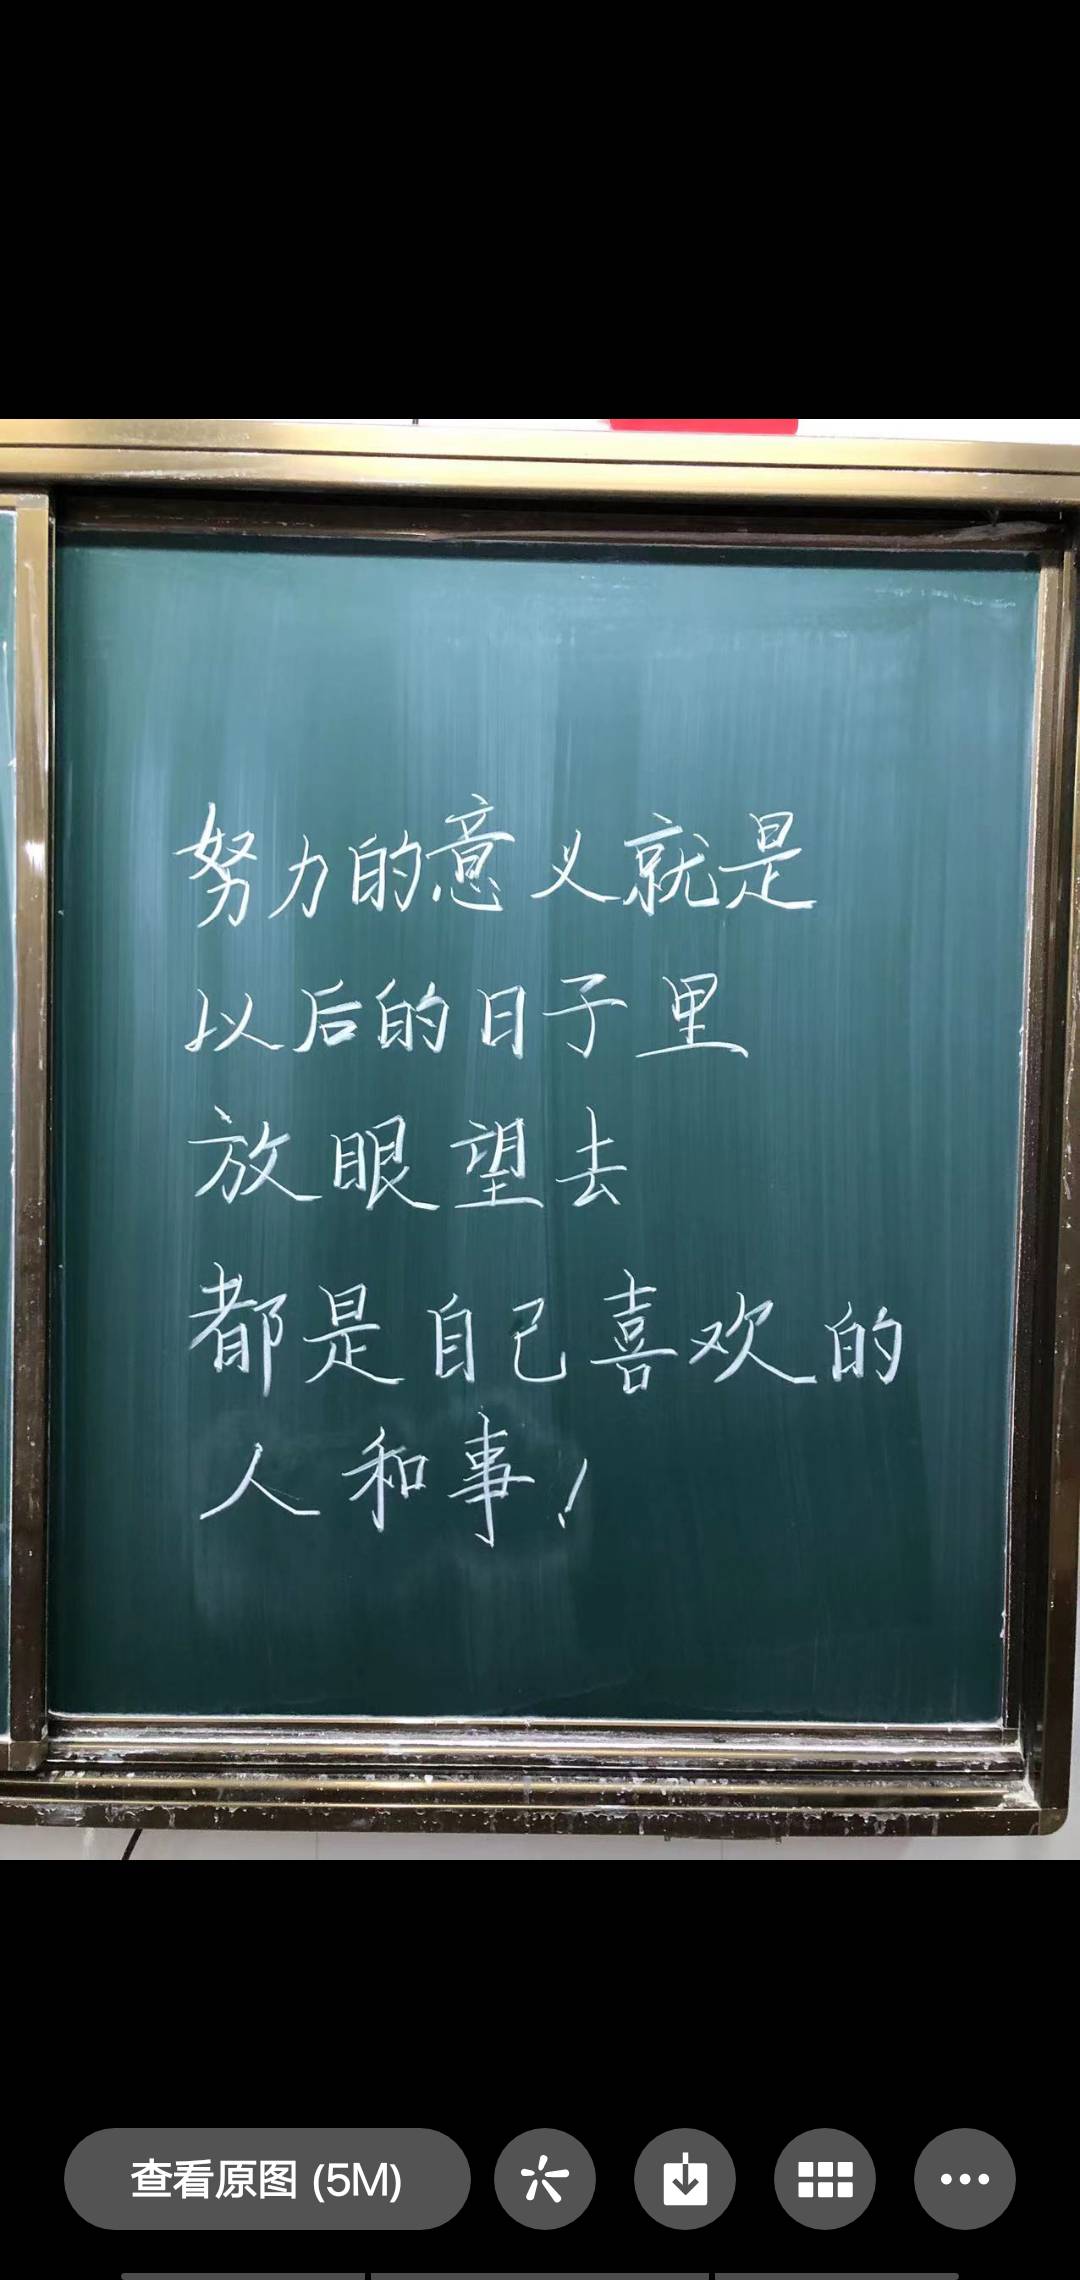 努力的意义就是
以后的日子里
放眼望去
都是自己喜欢的
人和事！
查看原图 (5M)